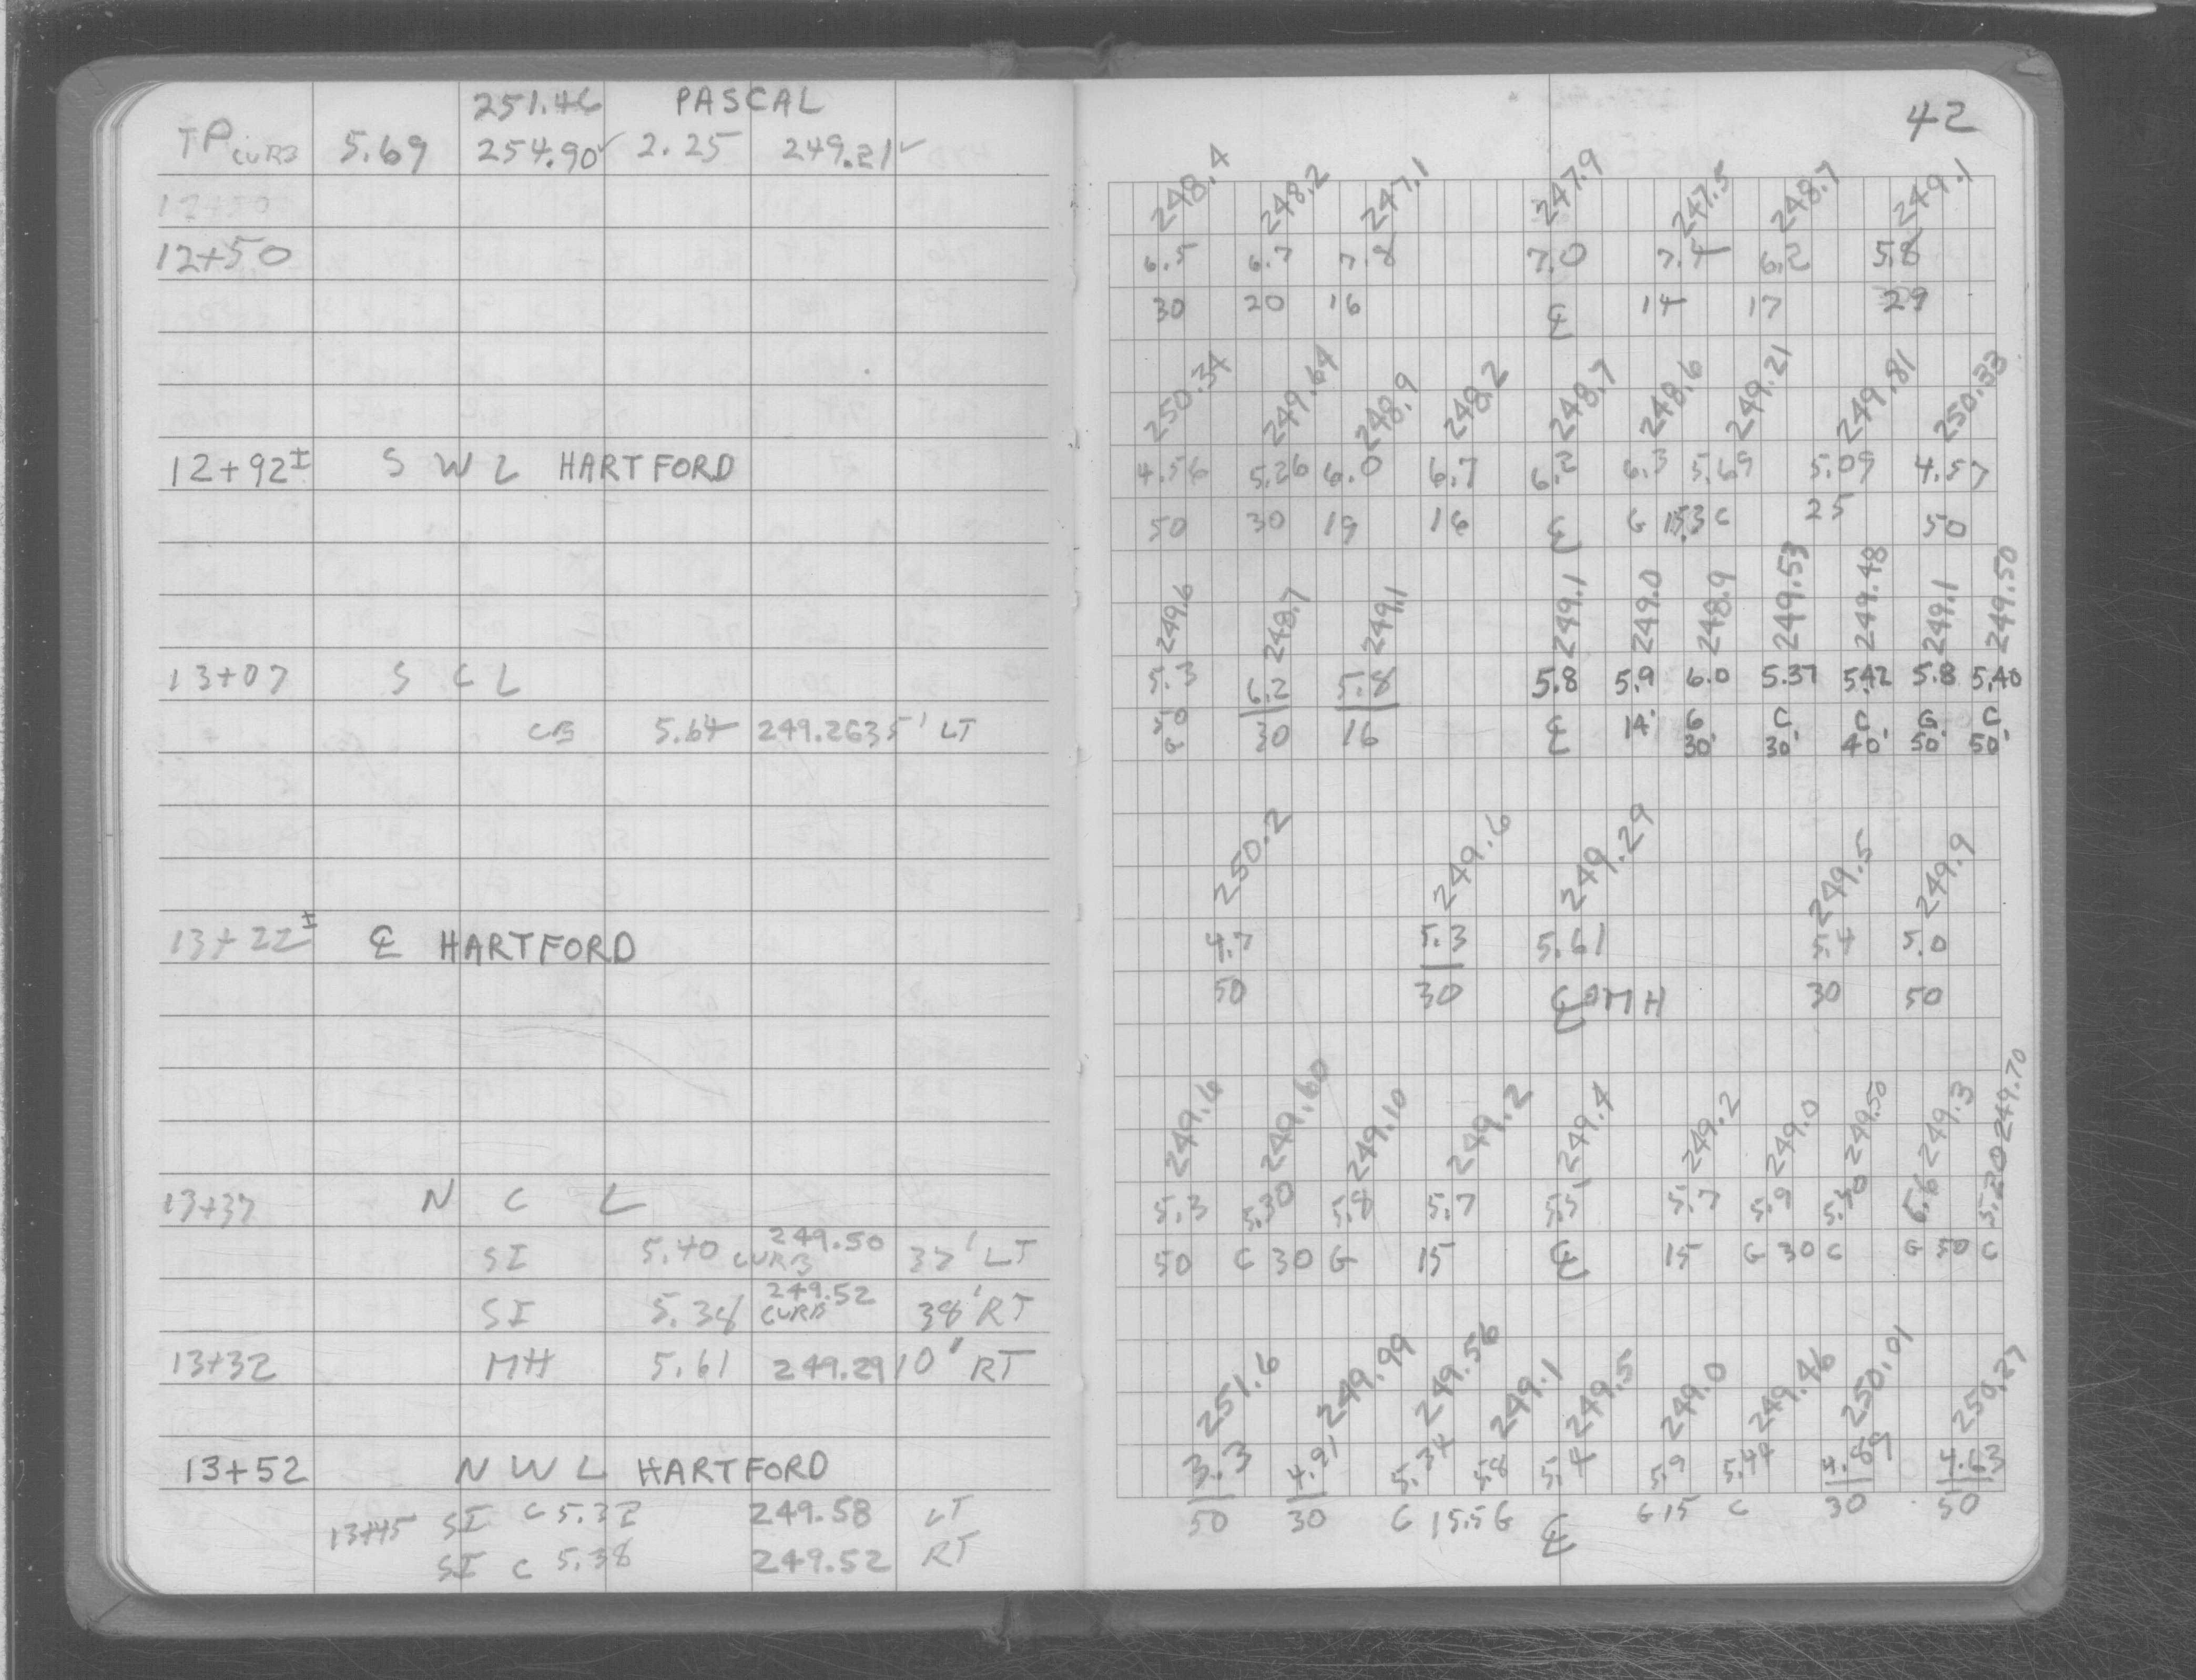 251.46 PASCAL
TP CURB 5.69 254.90✓ 2.25 249.21✓
12+50
12+50
12+92± S W L HARTFORD
13+07 S C L
CB 5.64 249.26 35' LT
13+22± ℄ HARTFORD
13+37 N C L
SI 5.40 249.50 CURB 37' LT
SI 5.38 249.52 CURB 38' RT
13+32 MH 5.61 249.29 10' RT
13+52 N W L HARTFORD
13+45 SI C 5.32 249.58 LT
SI C 5.38 249.52 RT
42
248.4 248.2 247.1 247.9 247.5 248.7 249.1
6.5 6.7 7.8 7.0 7.4 6.2 5.8
30 20 16 ℄ 14 17 29
250.34 249.64 248.9 248.2 248.7 248.6 249.21 249.81 250.33
4.56 5.26 6.0 6.7 6.2 6.3 5.69 5.09 4.57
50 30 19 16 ℄ G 15.3 C 25 50
249.6 248.7 249.1 249.1 249.0 248.9 249.53 249.48 249.1 249.50
5.3 6.2 5.8 5.8 5.9 6.0 5.37 5.42 5.8 5.40
50 30 16 ℄ 14' G C C G C
G 30' 30' 40' 50' 50'
250.2 249.6 249.29 249.5 249.9
4.7 5.3 5.61 5.4 5.0
50 30 ℄ MH 30 50
249.6 249.60 249.10 249.2 249.4 249.2 249.0 249.50 249.3 249.70
5.3 5.30 5.8 5.7 5.5 5.7 5.9 5.40 5.6 5.20
50 C 30 G 15 ℄ 15 G 30 C G 50 C
251.6 249.99 249.56 249.1 249.5 249.0 249.46 250.01 250.27
3.3 4.91 5.34 5.8 5.4 5.9 5.44 4.89 4.63
50 30 C 15.5 G ℄ G 15 C 30 50